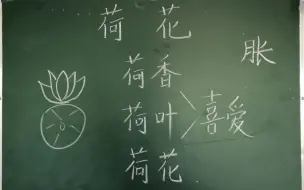 荷花
胀
荷香
荷叶
喜爱
荷花